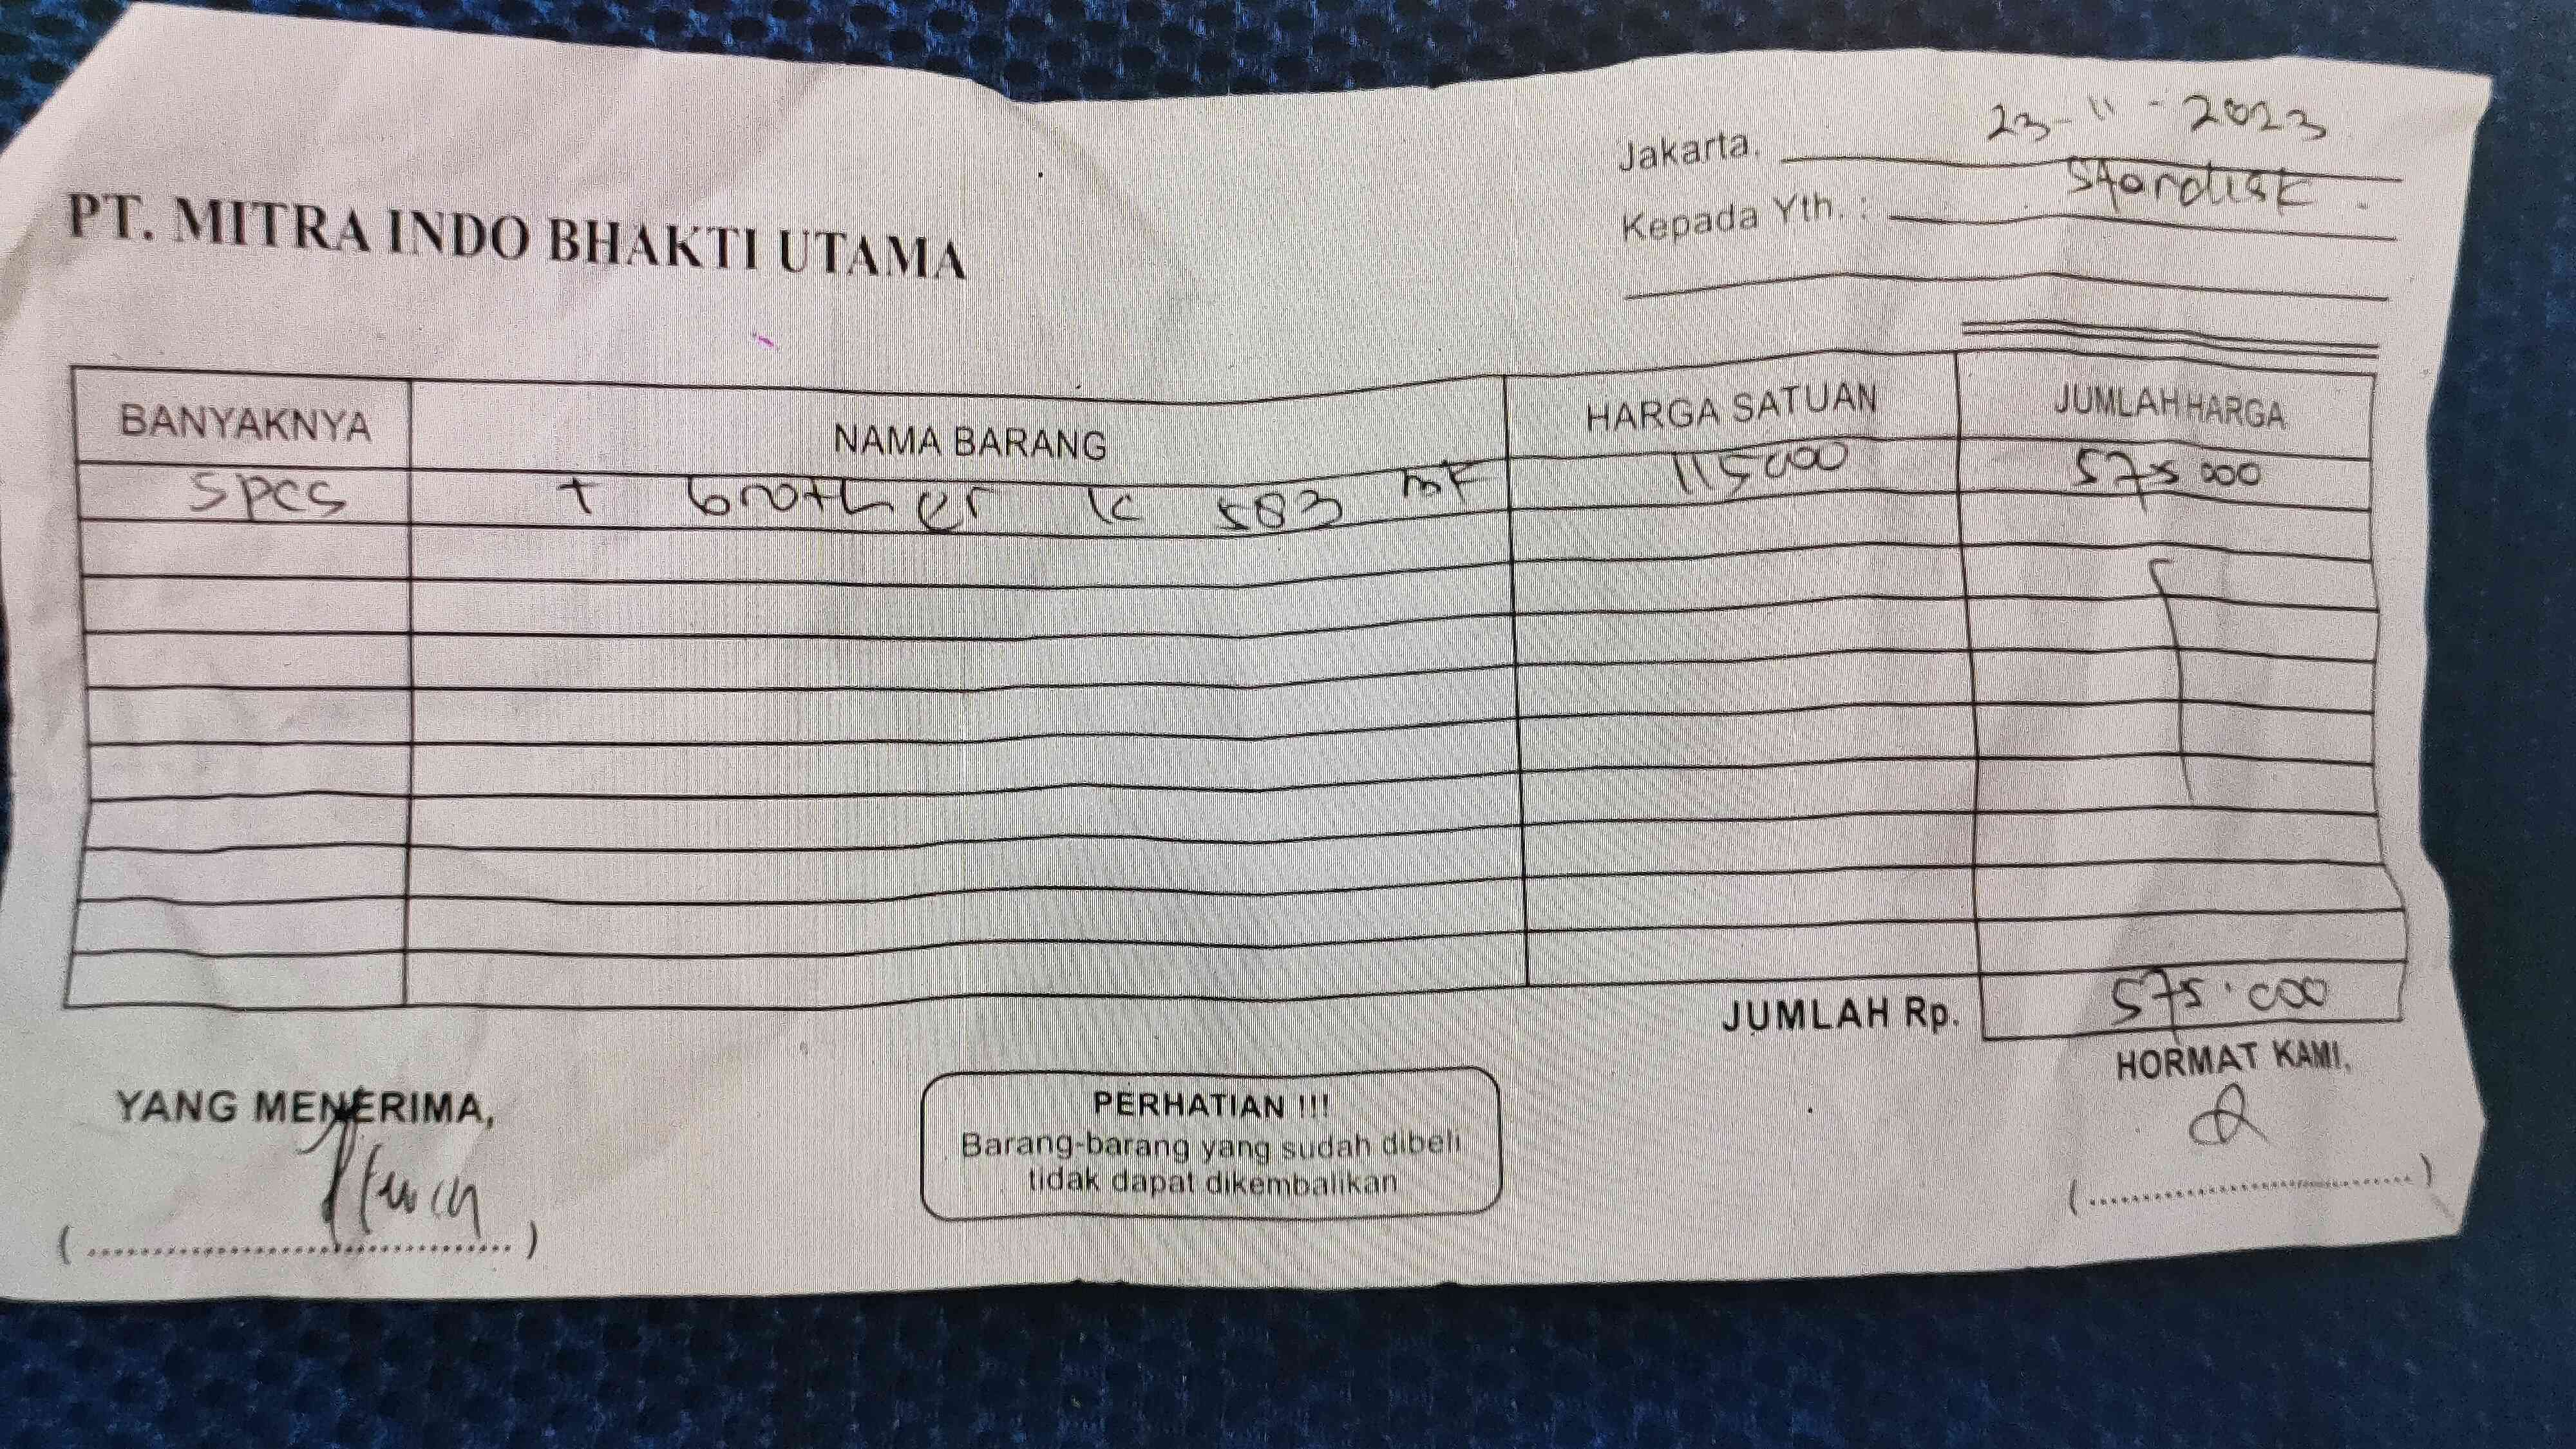 Jakarta, 23-11-2023
PT. MITRA INDO BHAKTI UTAMA
Kepada Yth. : Stardisk
BANYAKNYA NAMA BARANG HARGA SATUAN JUMLAH HARGA
5 pcs t brother lc 583 mf 115000 575 000
JUMLAH Rp. 575.000
YANG MENERIMA, HORMAT KAMI,
PERHATIAN !!!
Barang-barang yang sudah dibeli
tidak dapat dikembalikan
(..............................) (..............................)